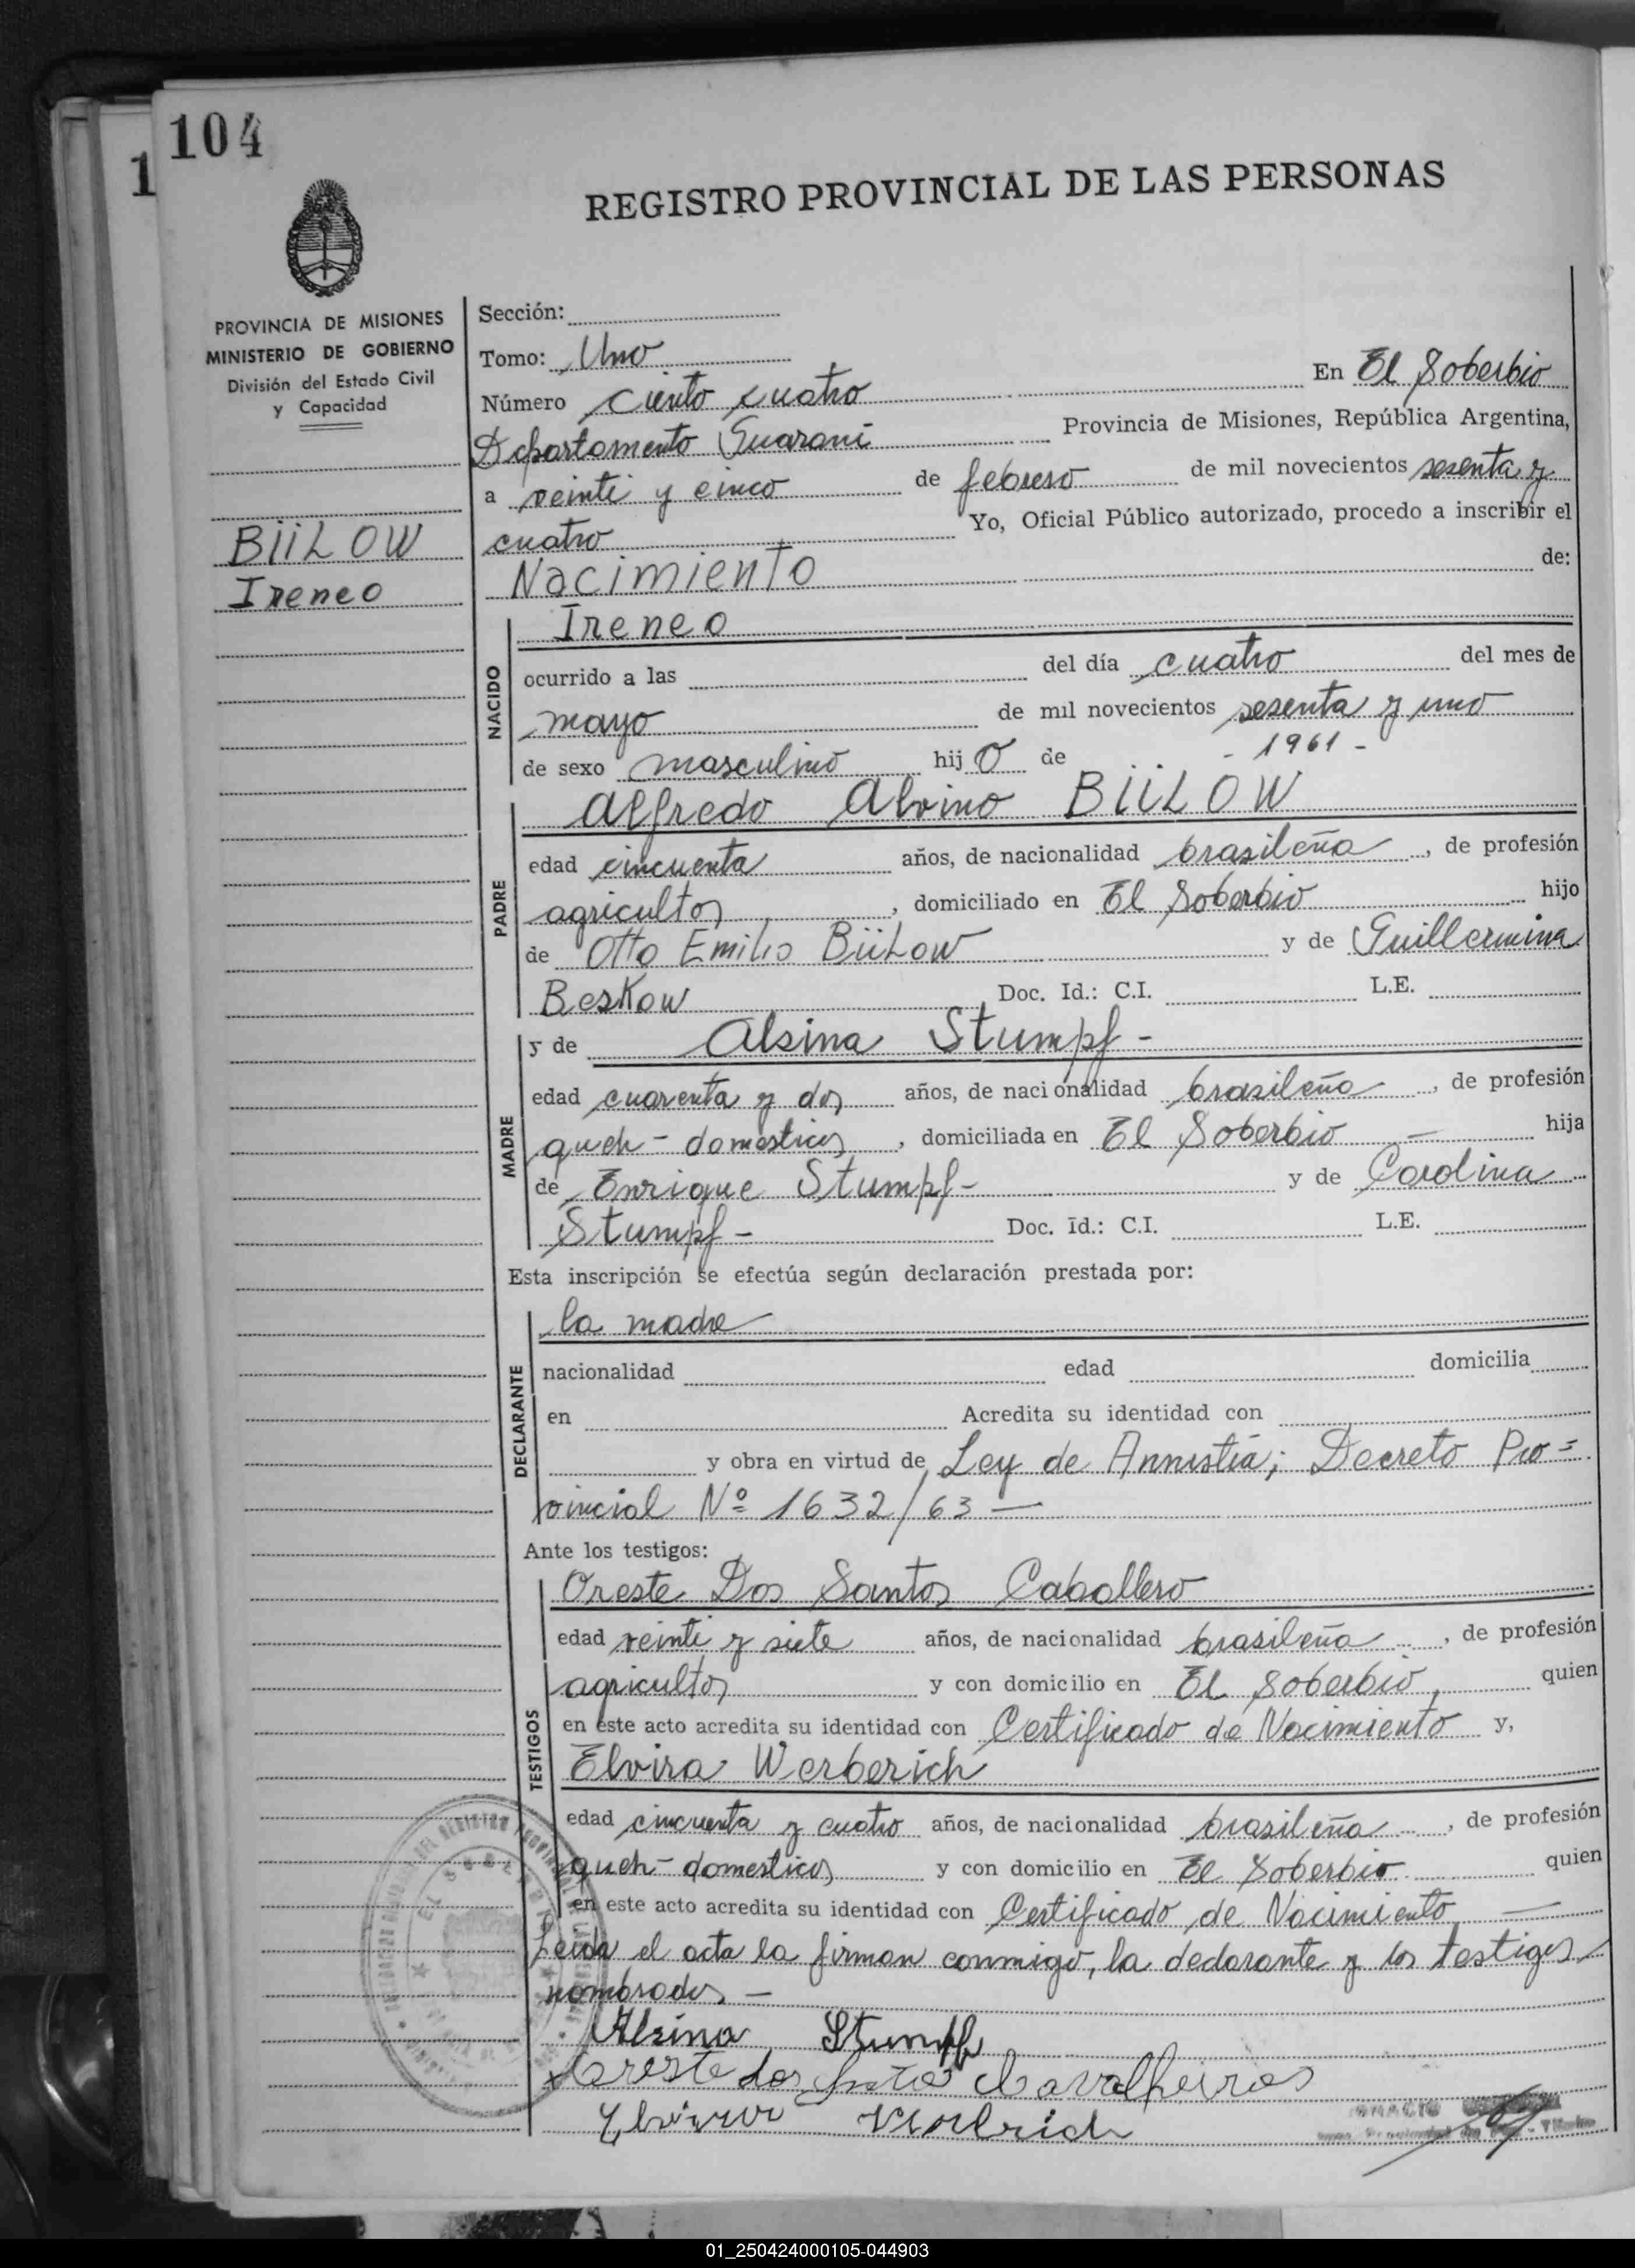 104
1
REGISTRO PROVINCIAL DE LAS PERSONAS
PROVINCIA DE MISIONES
MINISTERIO DE GOBIERNO
División del Estado Civil
y Capacidad
BiiLOW
Ireneo
Sección:
Tomo: Uno
Número ciento cuatro En El Soberbio
Departamento Guarani Provincia de Misiones, República Argentina,
a veinti y cinco de febrero de mil novecientos sesenta y
cuatro Yo, Oficial Público autorizado, procedo a inscribir el
Nacimiento de:
NACIDO
Ireneo
ocurrido a las del día cuatro del mes de
mayo de mil novecientos sesenta y uno
- 1961 -
de sexo masculino hijo de
PADRE
Alfredo Alvino BiiLOW
edad cincuenta años, de nacionalidad brasileña, de profesión
agricultor, domiciliado en El Soberbio hijo
de Otto Emilio BiiLow y de Guillermina
Beskow Doc. Id.: C.I. L.E.
MADRE
y de Alsina Stumpf -
edad cuarenta y dos años, de nacionalidad brasileña, de profesión
queh- domesticos, domiciliada en El Soberbio — hija
de Enrique Stumpf - y de Carolina
Stumpf - Doc. Id.: C.I. L.E.
Esta inscripción se efectúa según declaración prestada por:
DECLARANTE
la madre
nacionalidad edad domicilia
en Acredita su identidad con
y obra en virtud de Ley de Annistia; Decreto Pro=
vincial Nº 1632/63 —
Ante los testigos:
TESTIGOS
Oreste Dos Santos Caballero
edad veinti y siete años, de nacionalidad brasileña, de profesión
agricultor y con domicilio en El Soberbio, quien
en este acto acredita su identidad con Certificado de Nacimiento y,
Elvira Werberich
edad cincuenta y cuatro años, de nacionalidad brasileña, de profesión
queh- domesticos y con domicilio en El Soberbio quien
en este acto acredita su identidad con Certificado de Nacimiento —
Leida el acta la firman conmigo, la declarante y los testigos
nombrados —
Alsina Stumpf
Oreste dos Cavalheiros
01_250424000105-044903